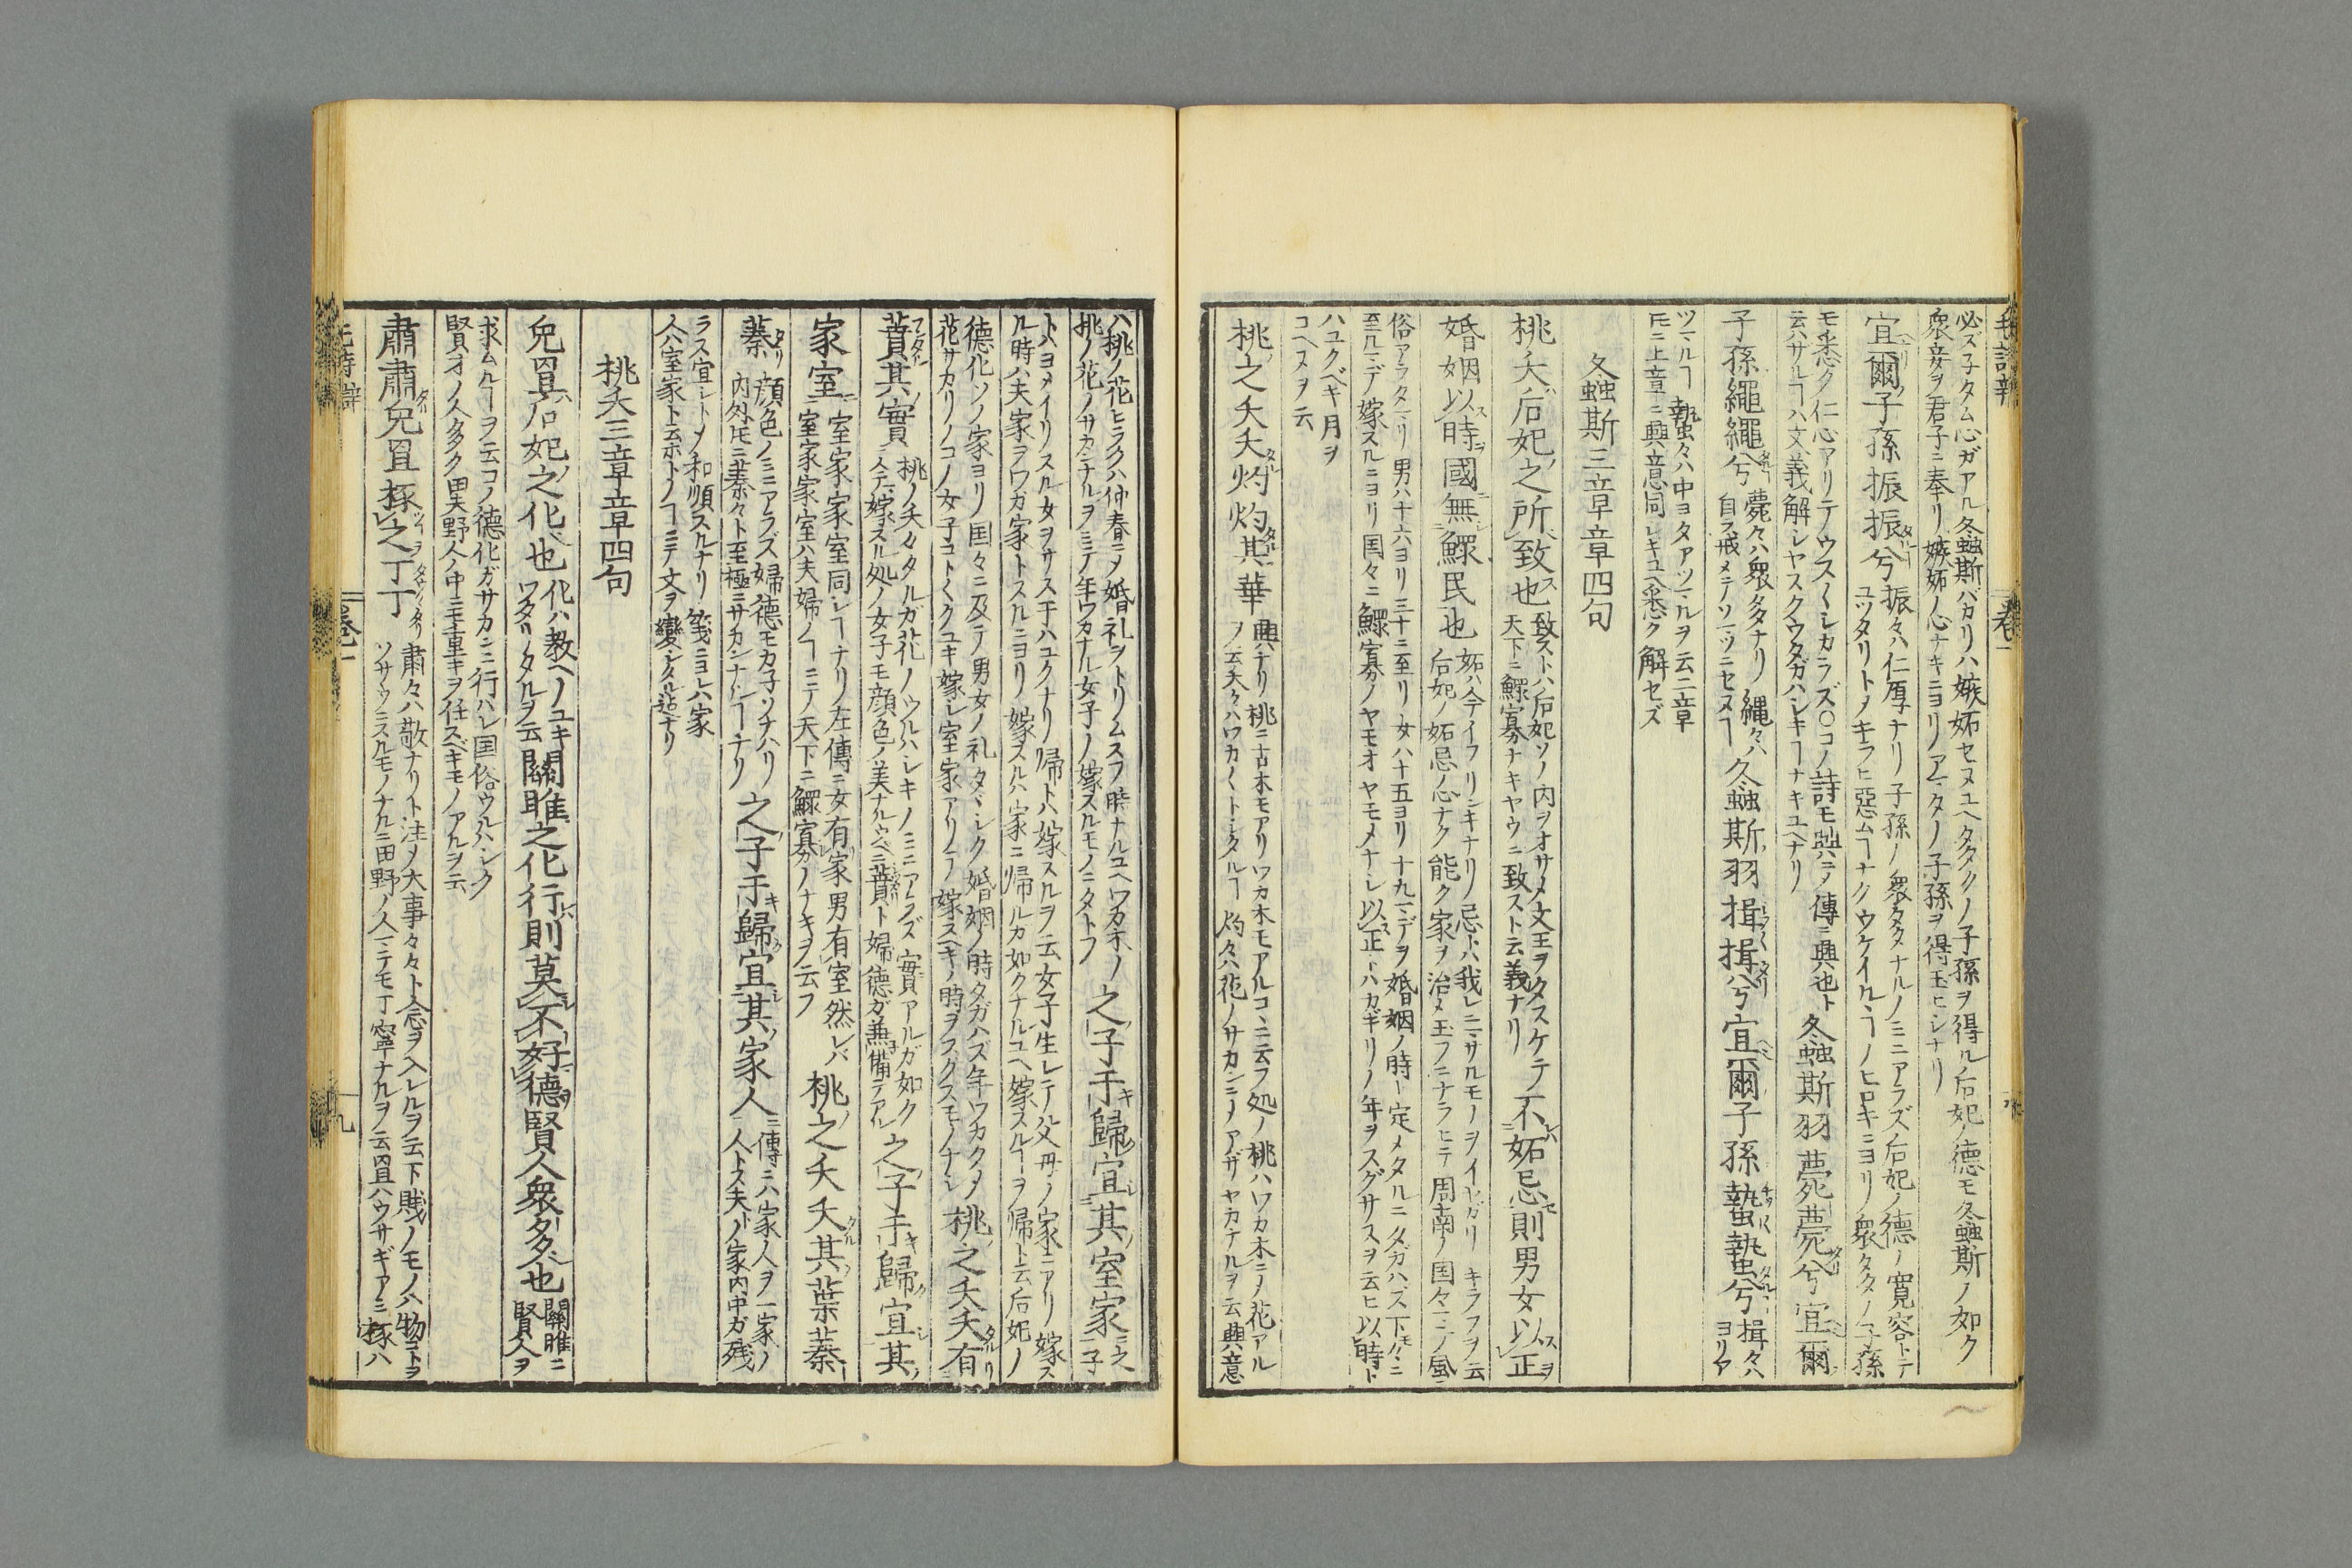 必ズ子タム心ガアル冬螽斯バカリハ嫉妬セヌユヘタクノ子孫ヲ得ル后妃ノ德モ冬螽斯ノ如ク
衆妾ヲ君子ニ奉リ嫉妬ノ心ナキニヨリアタノ子孫ヲ得玉ヒシナリ
宜爾子孫振振兮
振々ハ仁厚ナリ子孫ノ衆タナルノミニアラズ后妃ノ德ノ寛容トテ
ユツタリトメキラヒ惡ム┐ナクウケイル┐ノヒロキニヨリ衆タクノ子孫
モ悉ク仁心アリテウス〱シカラズ○コノ詩モ興ニテ傳ニ興也ト
云ハサル┐ハ文義解シヤスクウタガハシキ┐ナキユヘナリ
冬螽斯羽薨薨兮宜爾
子孫繩繩兮
薨々ハ衆タナリ縄々ハ
自ラ戒メテソマツニセヌ┐
冬螽斯羽揖揖兮宜爾子孫蟄蟄兮
揖々ハ
ヨリア
ツマル┐蟄々ハ中ヨクアツマルヲ云二章
𪜈ニ上章ニ興意同シキユヘ悉ク解セズ
冬螽斯三章章四句
桃夭后妃之所致也
致ストハ后妃ソノ内ヲオサメ文王ヲタスケテ
天下ニ鰥寡ナキヤウニ致スト云義ナリ
不妬忌則男女以正
婚姻以時國無鰥民也
妬ハ今イフリンキナリ忌トハ我レニマサルモノヲイヤガリキラフヲ云
后妃ノ妬忌ノ心ナク能ク家ヲ治メ玉フニナラヒテ周南ノ国々ニノ風
俗アラタマリ男ハ十六ヨリ三十ニ至リ女ハ十五ヨリ十九マデヲ婚姻ノ時ト定メタルニタガハズ下々ニ
至ルマデ嫁スルニヨリ国々ニ鰥寡ノヤモオヤモメナシ以正トハカギリノ年ヲスグサヌヲ云ヒ以時ト
ハユクベキ月ヲ
コヘヌヲ云
桃之夭夭灼灼其華
興ナリ桃ニ古木モアリワカ木モアルコヽニ云フ処ノ桃ハワカ木ニノ花アル
ヲ云夭々ハワカ〱トシタル┐灼々ハ花ノサカンニメアザヤカナルヲ云興意
ハ桃ノ花ヒラクハ仲春ニメ婚礼ヲトリムスブ時ナルユヘワカ木ノ
桃ノ花ノサカンナルヲミテ年ワカナル女子ノ嫁スルモノニタトフ
之子于歸宜其室家
之子
トハヨメイリスル女ヲサス于ハユクナリ歸トハ嫁スルヲ云女子生レテハ父母ノ家ニアリ嫁ス
ル時ハ夫家ヲワガ家トスルニヨリ嫁スルハ家ニ歸ルカ如クナルユヘ嫁スル┐ヲ歸ト云后妃ノ
德化ソノ家ヨリ国々ニ及テ男女ノ礼タヾシク婚姻ノ時タガハズ年ワカクメ
花サカリノコノ女子コト〲クユキ嫁シ室家アリテ嫁スベキノ時ヲスグスモノナシ
桃之夭夭有
蕡其實
桃ノ夭々タルガ花ノウルハシキノミニアラズ實アルガ如ク
人ニ嫁スル処ノ女子モ顔色ノ美ナルウヘニ蕡ト婦德ガ兼備テアル
之子于歸宜其
家室
室家家室同シ┐ナリ左傳ニ女有家男有室然レバ
室家家室ハ夫婦ノ┐ニテ天下ニ鰥寡ノナキヲ云フ
桃之夭夭其葉蓁
蓁
顔色ノミニアラズ婦德モカ子ソナハリ
内外𪜈ニ蓁々ト至極ニサカンナル┐ナリ
之子于歸宜其家人
傳ニハ家人ヲ一家ノ
人トス夫トノ家内中ガ残
ラス宜シトメ和順スルナリ箋ニヨレハ家
人ハ室家ト云ホトノ┐ニテ文ヲ變シタル迠ナリ
桃夭三章章四句
兔罝后妃之化也
化ハ教ヘノユキ
ワタリタルヲ云
關雎之化行則莫不好德賢人衆多也
關雎ニ
賢人ヲ
求ムル┐ヲ云コノ德化ガサカンニ行ハレ国俗ウルハシク
賢才ノ人多ク異野人ノ中ニモ重キヲ任スベキモノアルヲ云
肅肅兔罝椓之丁丁
肅々ハ敬ナリト注ノ大事々々ト念ヲ入レルヲ云下賎ノモノハ物ゴトヲ
ソサウニスルモノナルニ田野ノ人ニテモ丁寧ナルヲ云罝ハウサギアミ椓ハ
毛詩辯
卷一
九